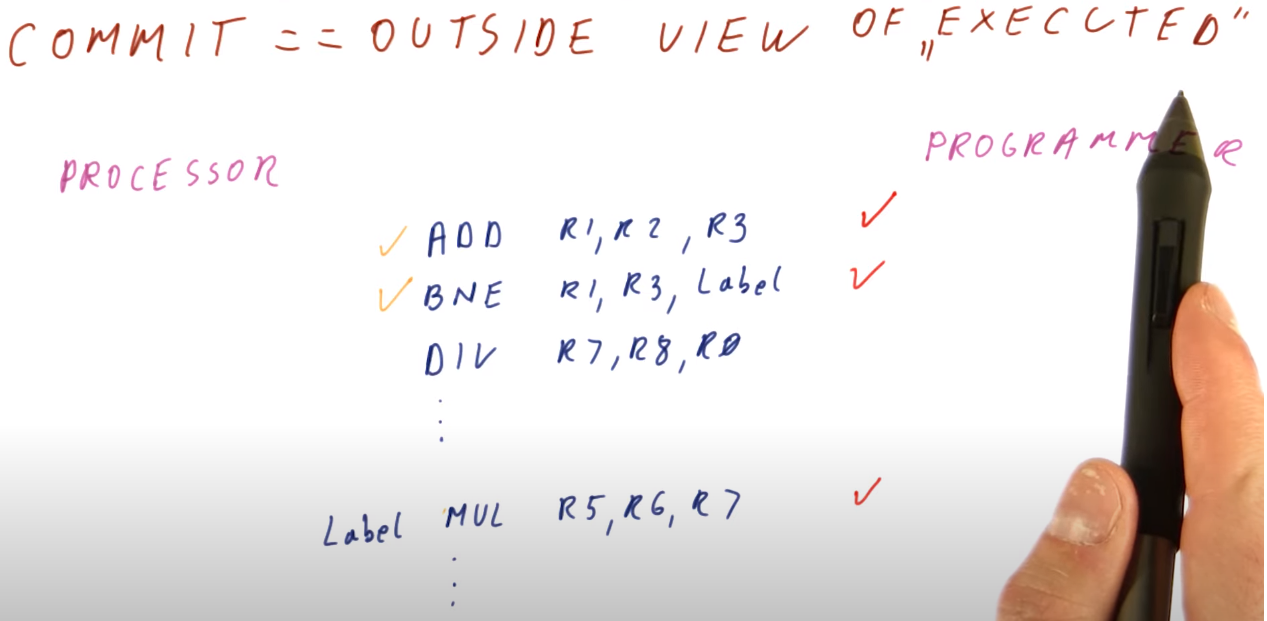 COMMIT == OUTSIDE VIEW OF „EXECUTED"
PROCESSOR
PROGRAMMER
✓ ADD R1, R2, R3 ✓
✓ BNE R1, R3, Label ✓
DIV R7, R8, R0
⋮
Label MUL R5, R6, R7 ✓
⋮